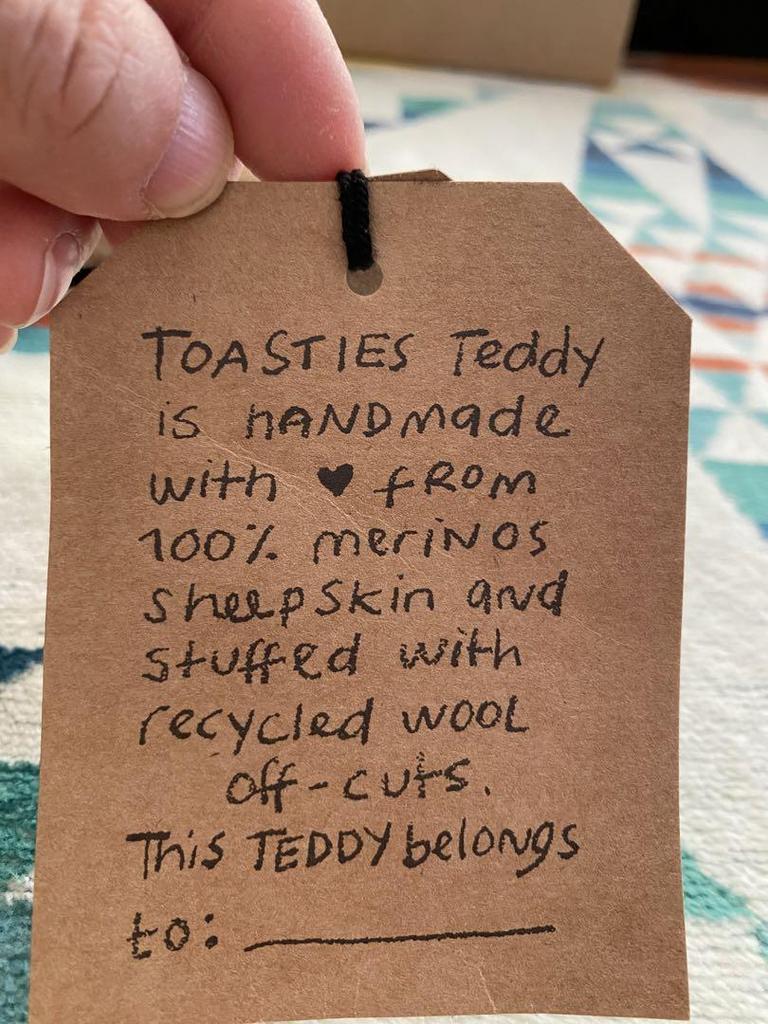 TOASTIES Teddy
is hANDmade
with ♥ fROm
100% meriNos
sheepskin and
stuffed with
recycled wOOL
off-cuts.
This TEDDY belongs
to: __________